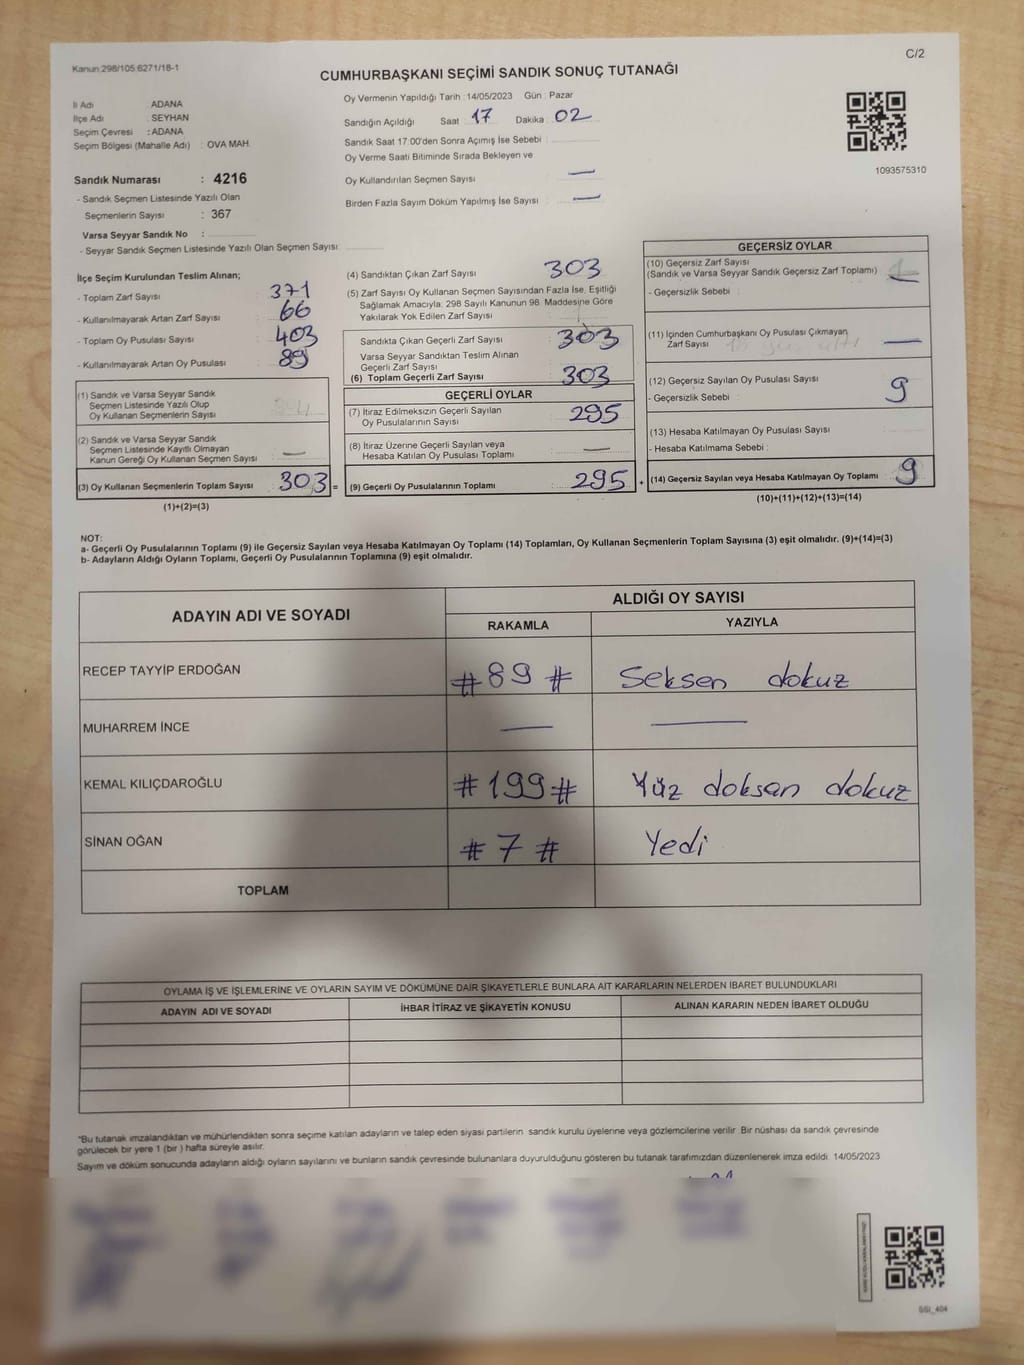 Kanun:298/105:6271/18-1
C/2
CUMHURBAŞKANI SEÇİMİ SANDIK SONUÇ TUTANAĞI
İl Adı : ADANA
İlçe Adı : SEYHAN
Seçim Çevresi : ADANA
Seçim Bölgesi (Mahalle Adı) : OVA MAH.
Sandık Numarası : 4216
- Sandık Seçmen Listesinde Yazılı Olan
Seçmenlerin Sayısı : 367
Varsa Seyyar Sandık No :
- Seyyar Sandık Seçmen Listesinde Yazılı Olan Seçmen Sayısı:
Oy Vermenin Yapıldığı Tarih : 14/05/2023 Gün : Pazar
Sandığın Açıldığı Saat 17 Dakika 02
Sandık Saat 17:00'den Sonra Açımış İse Sebebi :
Oy Verme Saati Bitiminde Sırada Bekleyen ve
Oy Kullandırılan Seçmen Sayısı : —
Birden Fazla Sayım Döküm Yapılmış İse Sayısı : —
1093575310
İlçe Seçim Kurulundan Teslim Alınan;
- Toplam Zarf Sayısı : 371
- Kullanılmayarak Artan Zarf Sayısı : 66
- Toplam Oy Pusulası Sayısı : 403
- Kullanılmayarak Artan Oy Pusulası : 89
(1) Sandık ve Varsa Seyyar Sandık
Seçmen Listesinde Yazılı Olup
Oy Kullanan Seçmenlerin Sayısı
(2) Sandık ve Varsa Seyyar Sandık
Seçmen Listesinde Kayıtlı Olmayan
Kanun Gereği Oy Kullanan Seçmen Sayısı : —
(3) Oy Kullanan Seçmenlerin Toplam Sayısı : 303 =
(1)+(2)=(3)
(4) Sandıktan Çıkan Zarf Sayısı : 303
(5) Zarf Sayısı Oy Kullanan Seçmen Sayısından Fazla İse, Eşitliği
Sağlamak Amacıyla; 298 Sayılı Kanunun 98. Maddesine Göre
Yakılarak Yok Edilen Zarf Sayısı :
Sandıkta Çıkan Geçerli Zarf Sayısı : 303
Varsa Seyyar Sandıktan Teslim Alınan
Geçerli Zarf Sayısı :
(6) Toplam Geçerli Zarf Sayısı : 303
GEÇERLİ OYLAR
(7) İtiraz Edilmeksizin Geçerli Sayılan
Oy Pusulalarının Sayısı : 295
(8) İtiraz Üzerine Geçerli Sayılan veya
Hesaba Katılan Oy Pusulası Toplamı : —
(9) Geçerli Oy Pusulalarının Toplamı : 295 +
GEÇERSİZ OYLAR
(10) Geçersiz Zarf Sayısı
(Sandık ve Varsa Seyyar Sandık Geçersiz Zarf Toplamı) : —
- Geçersizlik Sebebi :
(11) İçinden Cumhurbaşkanı Oy Pusulası Çıkmayan
Zarf Sayısı : —
(12) Geçersiz Sayılan Oy Pusulası Sayısı : 9
- Geçersizlik Sebebi :
(13) Hesaba Katılmayan Oy Pusulası Sayısı :
- Hesaba Katılmama Sebebi :
(14) Geçersiz Sayılan veya Hesaba Katılmayan Oy Toplamı : 9
(10)+(11)+(12)+(13)=(14)
NOT:
a- Geçerli Oy Pusulalarının Toplamı (9) ile Geçersiz Sayılan veya Hesaba Katılmayan Oy Toplamı (14) Toplamları, Oy Kullanan Seçmenlerin Toplam Sayısına (3) eşit olmalıdır. (9)+(14)=(3)
b- Adayların Aldığı Oyların Toplamı, Geçerli Oy Pusulalarının Toplamına (9) eşit olmalıdır.
ADAYIN ADI VE SOYADI
ALDIĞI OY SAYISI
RAKAMLA YAZIYLA
RECEP TAYYİP ERDOĞAN #89# Seksen dokuz
MUHARREM İNCE — —
KEMAL KILIÇDAROĞLU #199# Yüz doksan dokuz
SİNAN OĞAN #7# Yedi
TOPLAM
OYLAMA İŞ VE İŞLEMLERİNE VE OYLARIN SAYIM VE DÖKÜMÜNE DAİR ŞİKAYETLERLE BUNLARA AİT KARARLARIN NELERDEN İBARET BULUNDUKLARI
ADAYIN ADI VE SOYADI İHBAR İTİRAZ VE ŞİKAYETİN KONUSU ALINAN KARARIN NEDEN İBARET OLDUĞU
*Bu tutanak imzalandıktan ve mühürlendikten sonra seçime katılan adayların ve talep eden siyasi partilerin sandık kurulu üyelerine veya gözlemcilerine verilir. Bir nüshası da sandık çevresinde
görülecek bir yere 1 (bir ) hafta süreyle asılır.
Sayım ve döküm sonucunda adayların aldığı oyların sayılarını ve bunların sandık çevresinde bulunanlara duyurulduğunu gösteren bu tutanak tarafımızdan düzenlenerek imza edildi. 14/05/2023